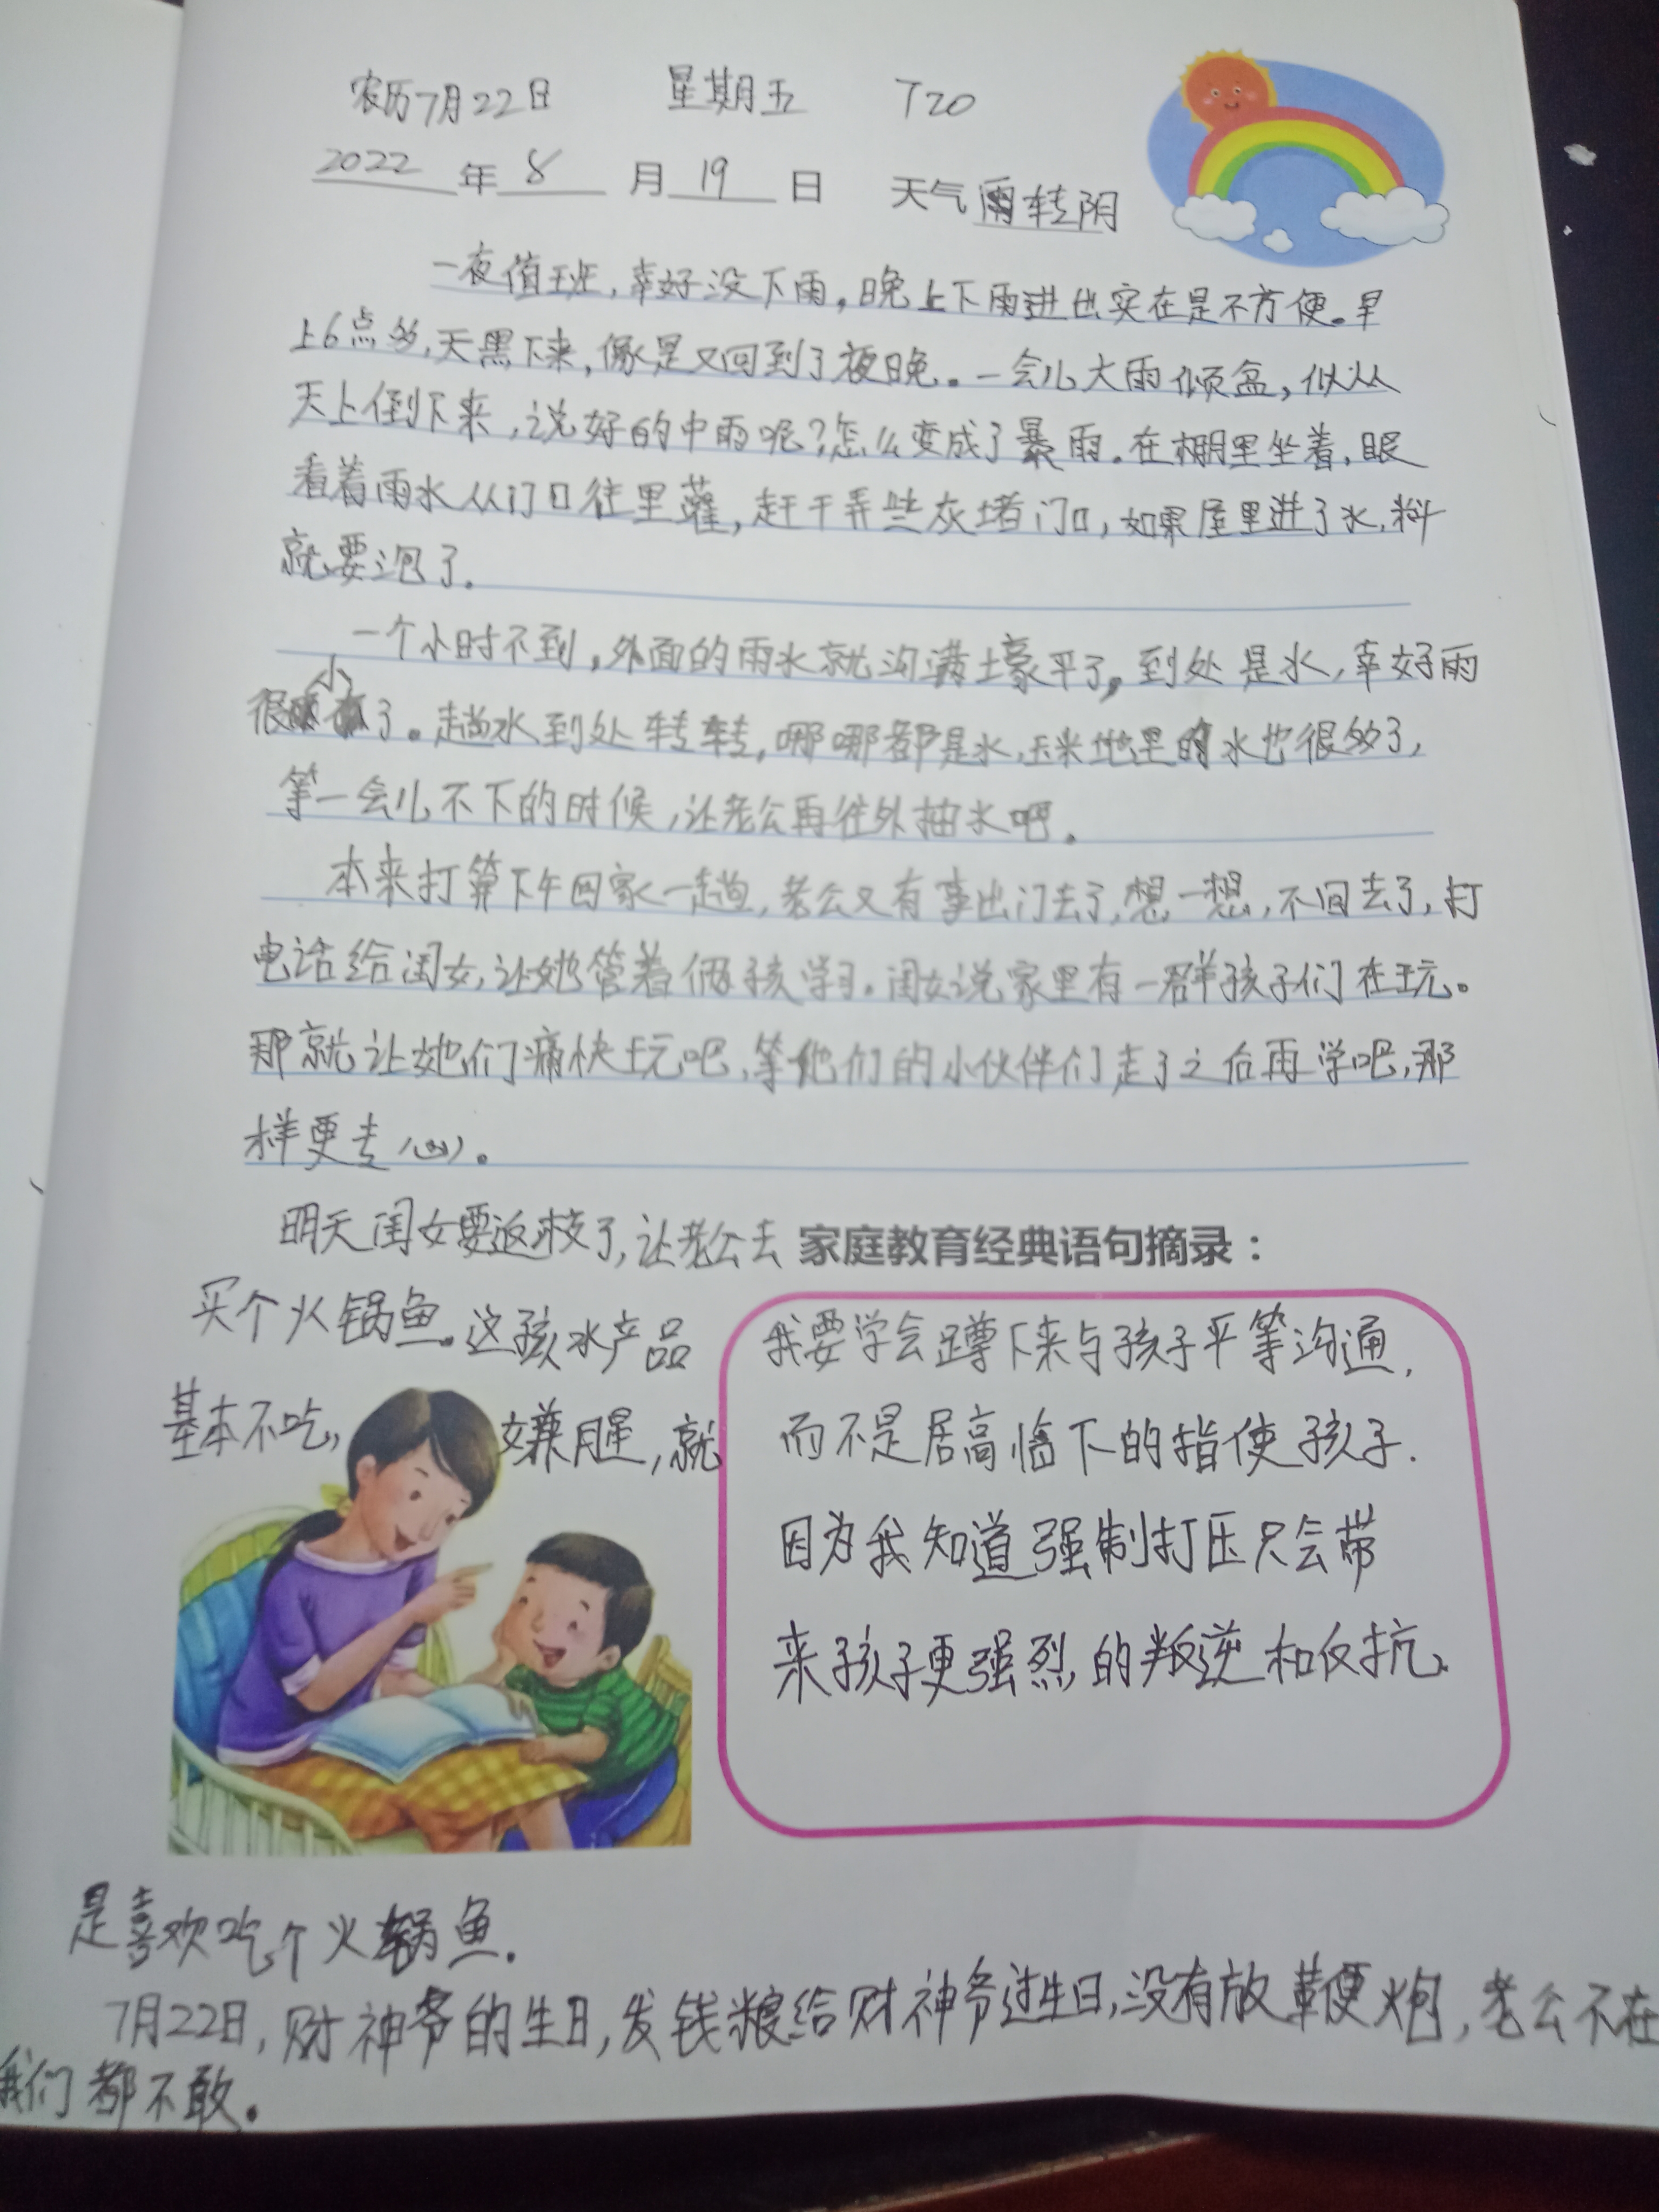 农历7月22日 星期五 T20
2022年8月19日 天气雨转阴
一夜值班,幸好没下雨,晚上下雨进出实在是不方便。早
上6点多,天黑下来,像是又回到了夜晚。一会儿大雨倾盆,似从
天上倒下来,说好的中雨呢?怎么变成了暴雨。在棚里坐着,眼
看着雨水从门口往里灌,赶干弄些灰堵门口,如果屋里进了水,料
就要泡了。
一个小时不到,外面的雨水就沟满土豪平了,到处是水,幸好雨
很小了。趟水到处转转,哪哪都是水,玉米地里的水也很多了,
等一会儿不下的时候,让老公再往外抽水吧。
本来打算下午回家一趟,老公又有事出门去了,想一想,不回去了,打
电话给闺女,让她管着俩孩学习。闺女说家里有一群孩子们在玩。
那就让她们痛快玩吧,等他们的小伙伴们走了之后再学吧,那
样更专心。
明天闺女要返校了,让老公去
买个火锅鱼。这孩水产品
基本不吃,嫌腥,就
家庭教育经典语句摘录:
我要学会蹲下来与孩子平等沟通,
而不是居高临下的指使孩子.
因为我知道强制打压只会带
来孩子更强烈的叛逆和反抗.
是喜欢吃个火锅鱼.
7月22日,财神爷的生日,发钱粮给财神爷过生日,没有放鞭炮,老公不在
我们都不敢。